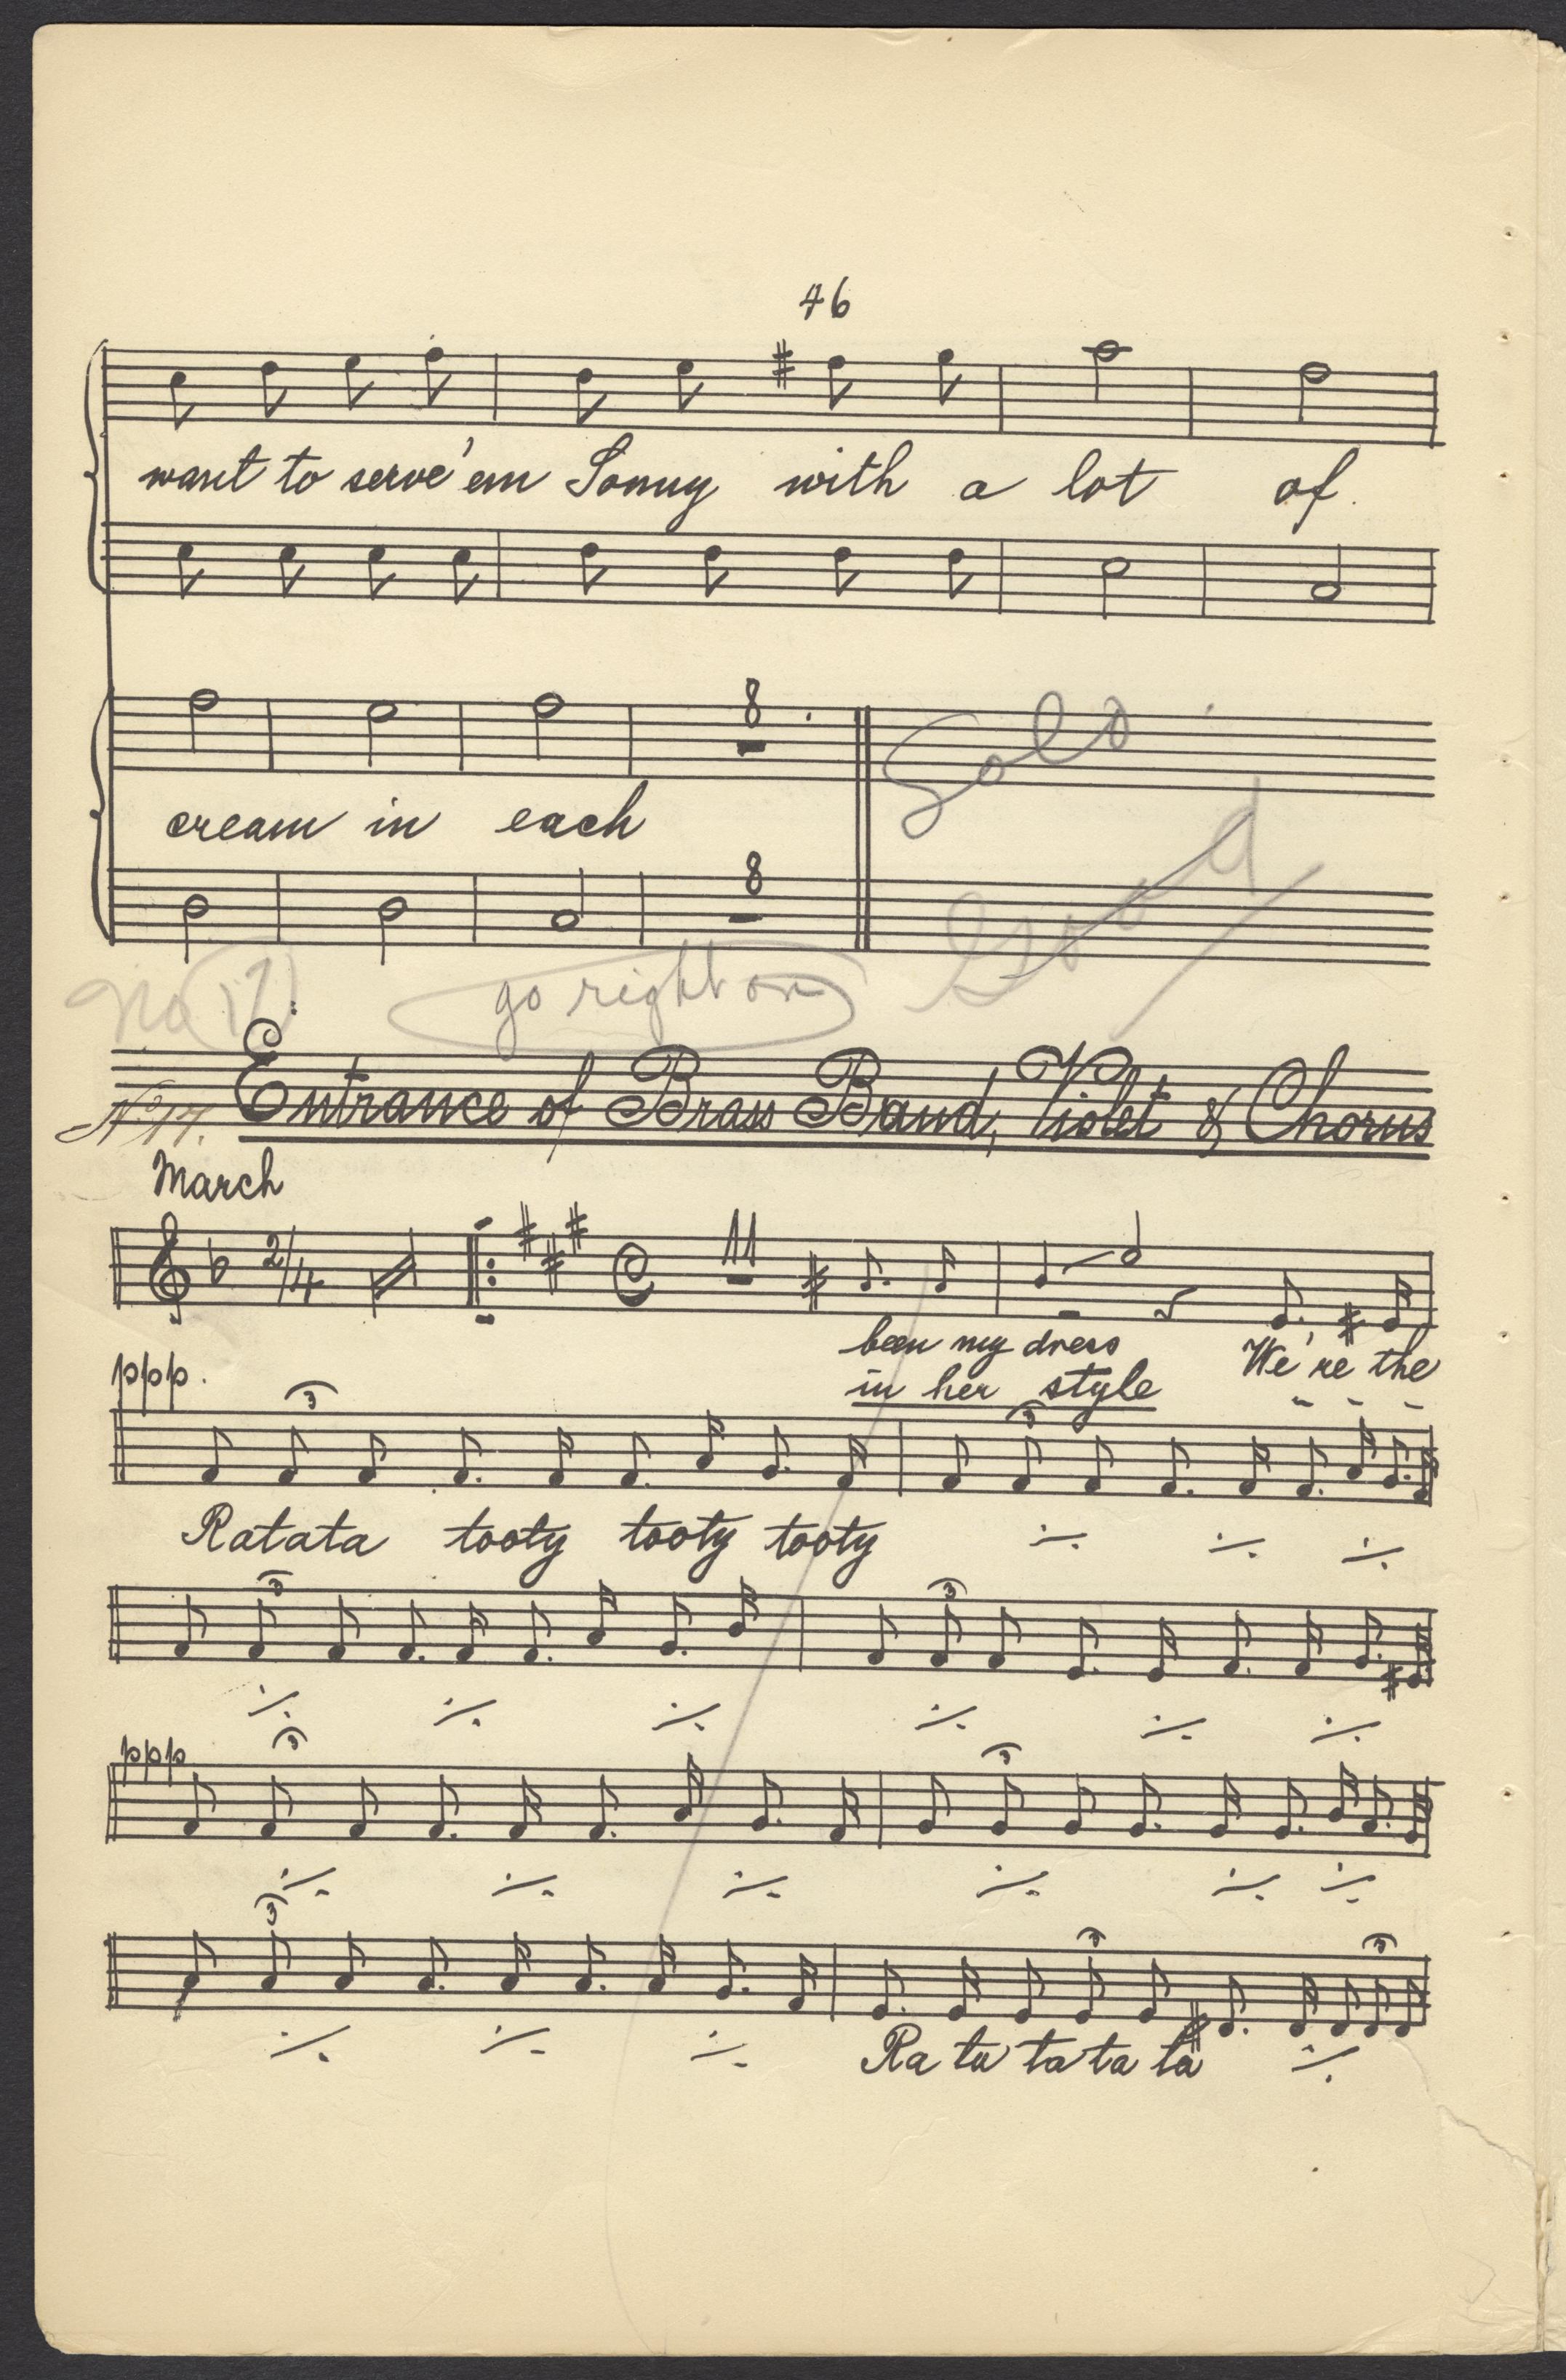 46
want to serve 'em Sonny with a lot of
8
Solo
cream in each
8
Good
No 17
go right on
No 17. Entrance of Brass Band, Violet & Chorus
March
2/4
11
been my dress We're the
in her style
ppp.
3 3
Ratata tooty tooty tooty
3 3
ppp
3 3
3 3 3
Ra ta ta ta ta